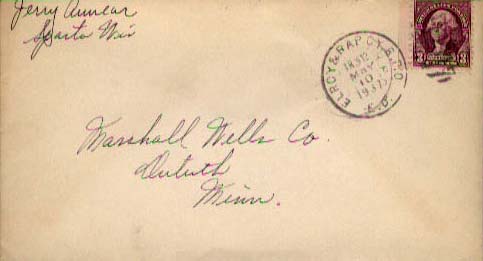 Jerry Annear
Sparta Wis
ELROY & RAP. CY. R.P.O.
MAY
10
193
Marshall Wells Co.
Duluth
Minn.
3 3